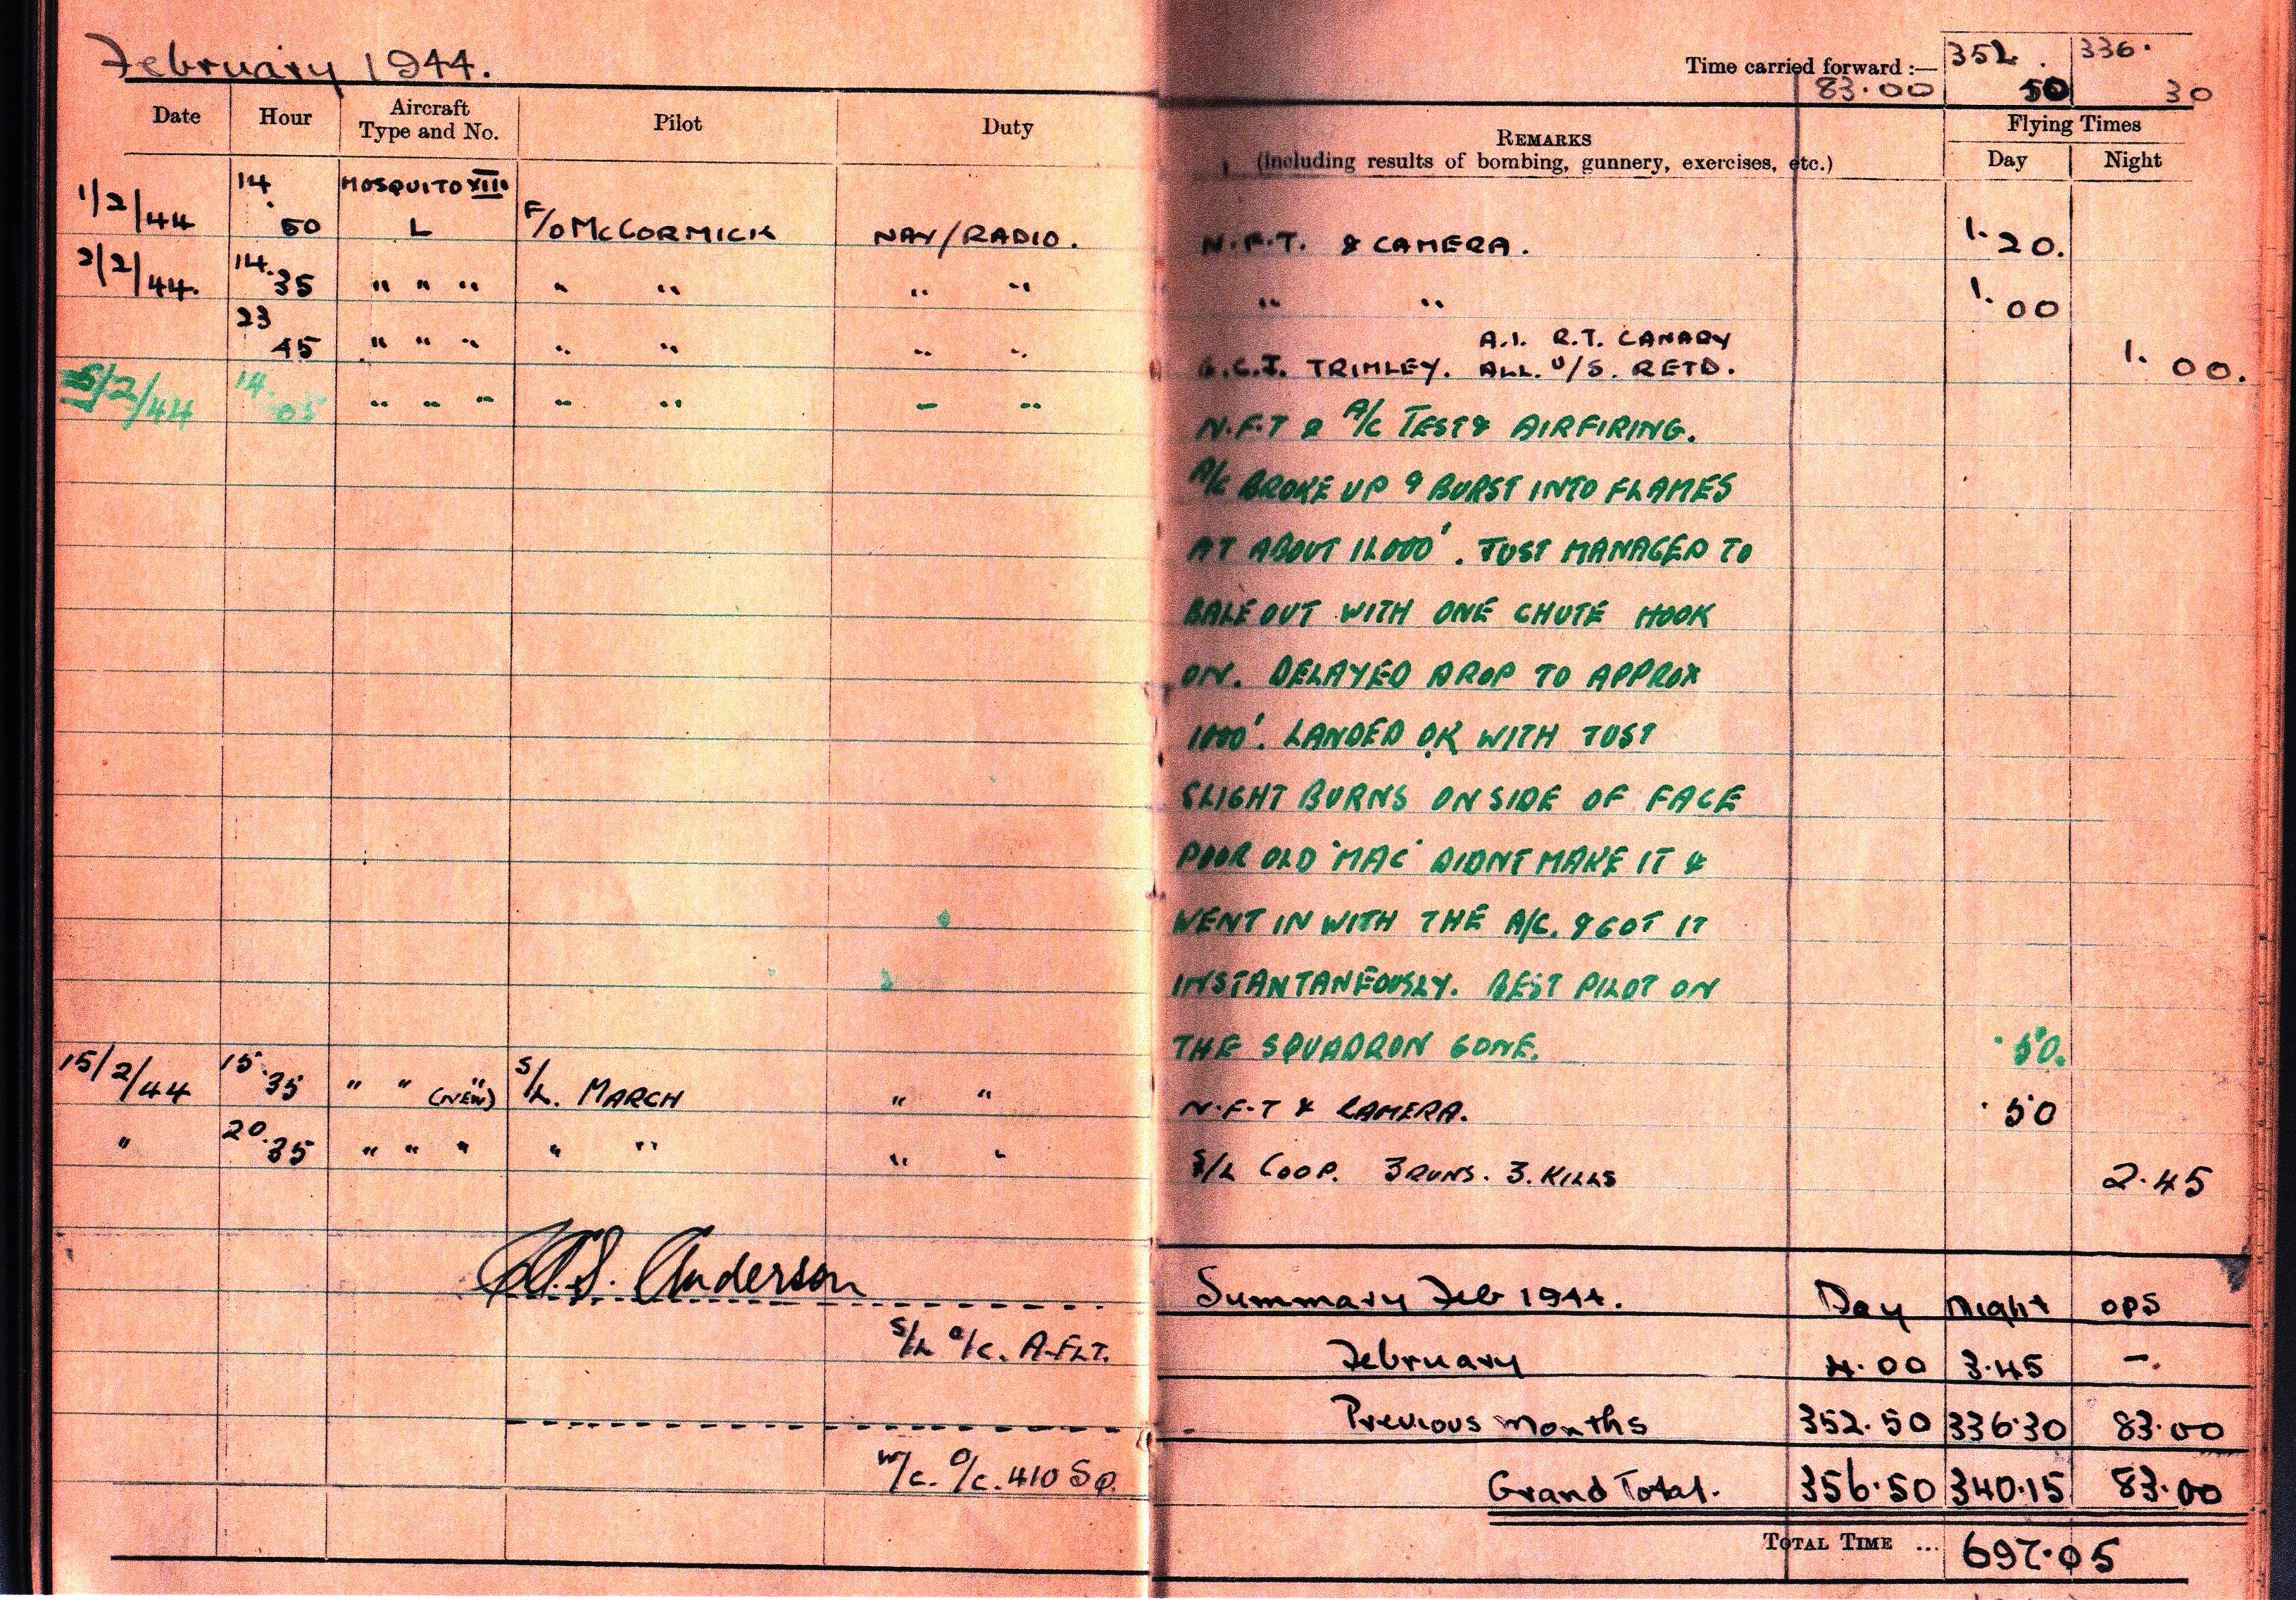 February 1944.
Time carried forward :— 352. 336.
83.00 50 30
Date Hour Aircraft Type and No. Pilot Duty
REMARKS
(including results of bombing, gunnery, exercises, etc.)
Flying Times
Day Night
1/2/44 14.50 MOSQUITO XIII L F/O McCORMICK NAV/RADIO. N.F.T. & CAMERA. 1.20.
2/2/44. 14.35 " " " " " " " " " 1.00
23 45 " " " " " " " A.I. R.T. CANARY
G.C.I. TRIMLEY. ALL. U/S. RETD. 1.00.
5/2/44 14.05 " " " " " " " N.F.T & A/C TEST & AIRFIRING.
A/C BROKE UP & BURST INTO FLAMES
AT ABOUT 12000'. JUST MANAGED TO
BALE OUT WITH ONE CHUTE HOOK
ON. DELAYED DROP TO APPROX
1000'. LANDED OK WITH JUST
SLIGHT BURNS ON SIDE OF FACE
POOR OLD 'MAC' DIDNT MAKE IT &
WENT IN WITH THE A/C. & GOT IT
INSTANTANEOUSLY. BEST PILOT ON
THE SQUADRON GONE. .50.
15/2/44 15.35 " " " (NEW) S/L. MARCH " " N.F.T & CAMERA. .50
" 20.35 " " " " " " " S/L COOP. 3 RUNS. 3. KILLS 2.45
S. Anderson
S/L O/C. A-FLT.
W/C. O/C. 410 SQ.
Summary Feb 1944. Day Night ops
February 4.00 3.45 –.
Previous Months 352.50 336.30 83.00
Grand Total. 356.50 340.15 83.00
TOTAL TIME ... 697.05